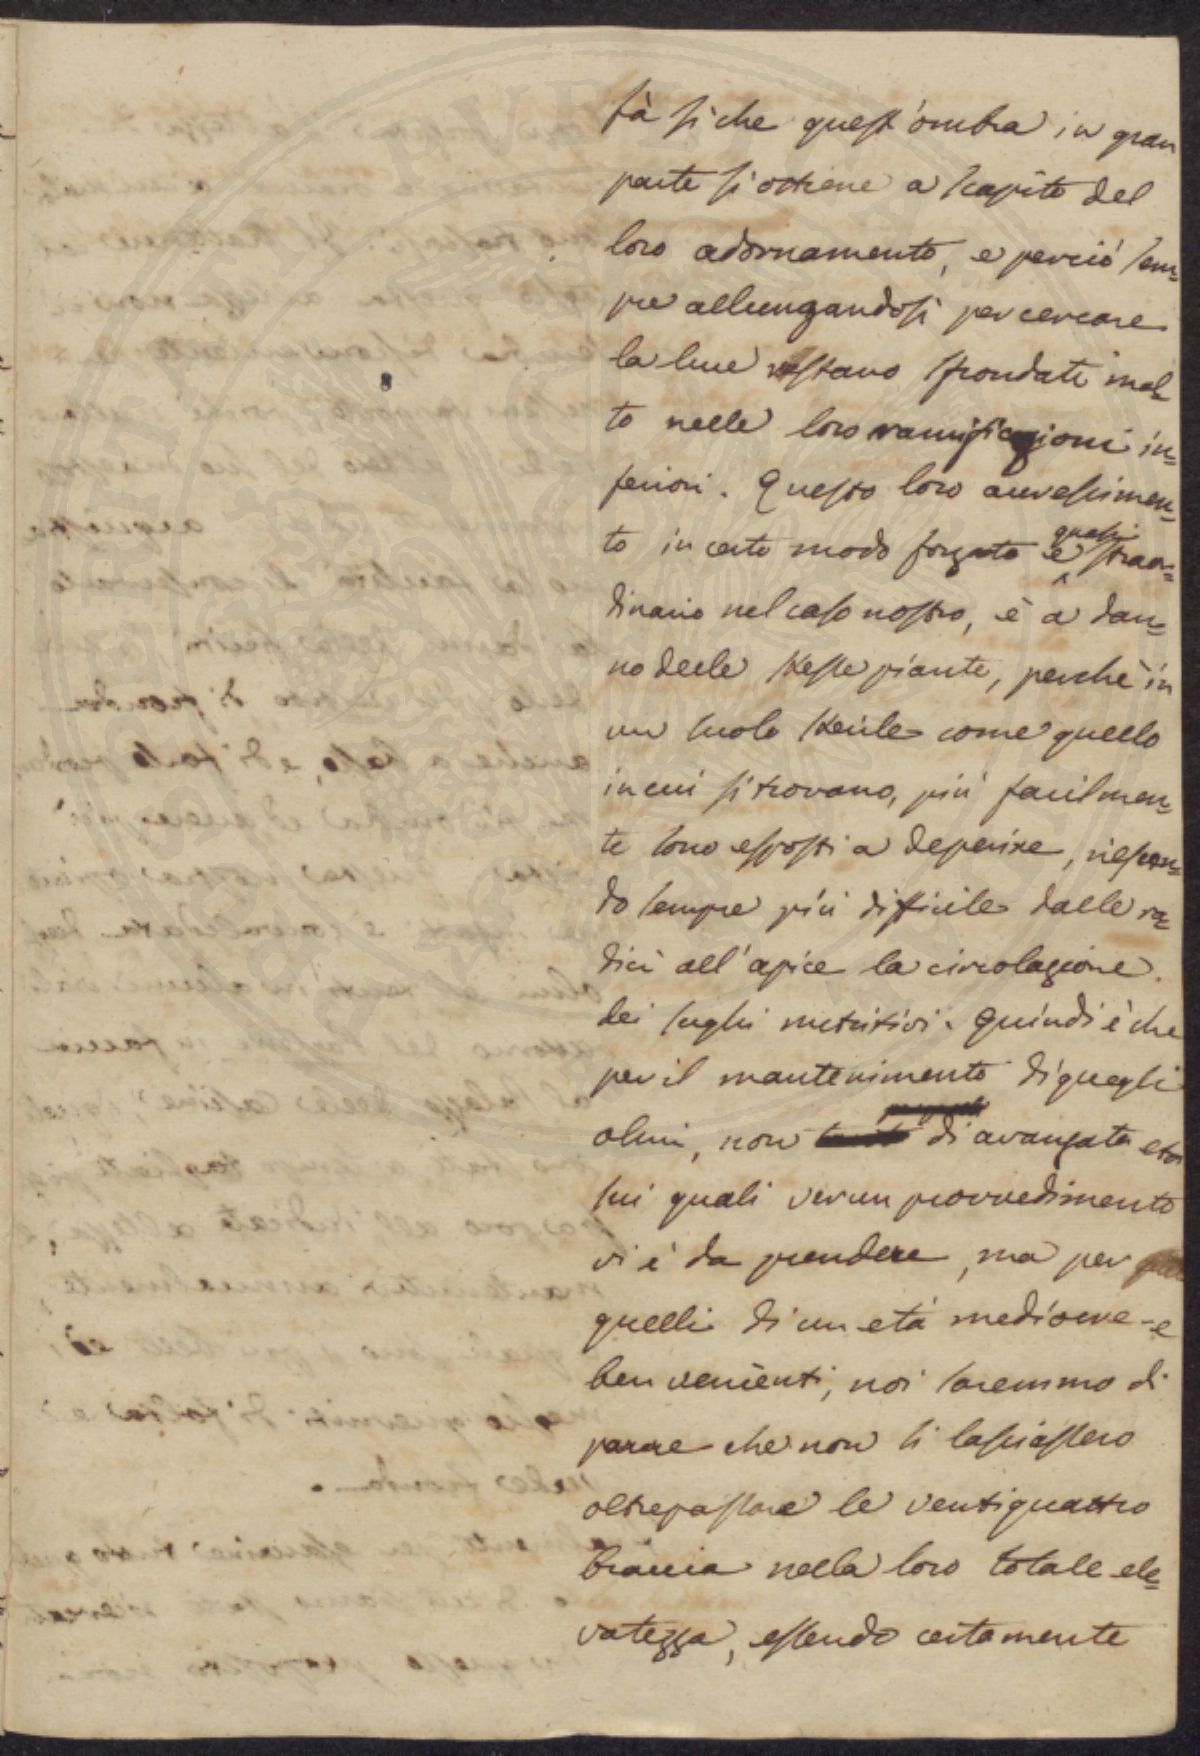 fà sì che quest'ombra in gran
parte si ottiene a scapito del
loro adornamento, e perciò sem=
pre allungandosi per cercare
la luce restano sfrondati mol=
to nelle loro ramificazioni in=
feriori. Questo loro accrescimen=
to in certo modo forzato e quasi straor=
dinario nel caso nostro, è a dan=
no delle stesse piante, perchè in
un suolo sterile come quello
in cui si trovano, più facilmen=
te sono esposti a deperire, riescen=
do sempre più difficile dalle ra=
dici all'apice la circolazione
dei sughi nutritivi. Quindi è che
per il mantenimento di quegli
olmi, non di avanzata età
sui quali verun provvedimento
vi è da prendere, ma per
quelli di un età mediocre e
ben venienti, noi saremmo di
parere che non si lasciassero
oltrepassare le ventiquattro
braccia nella loro totale ele=
vatezza, essendo certamente